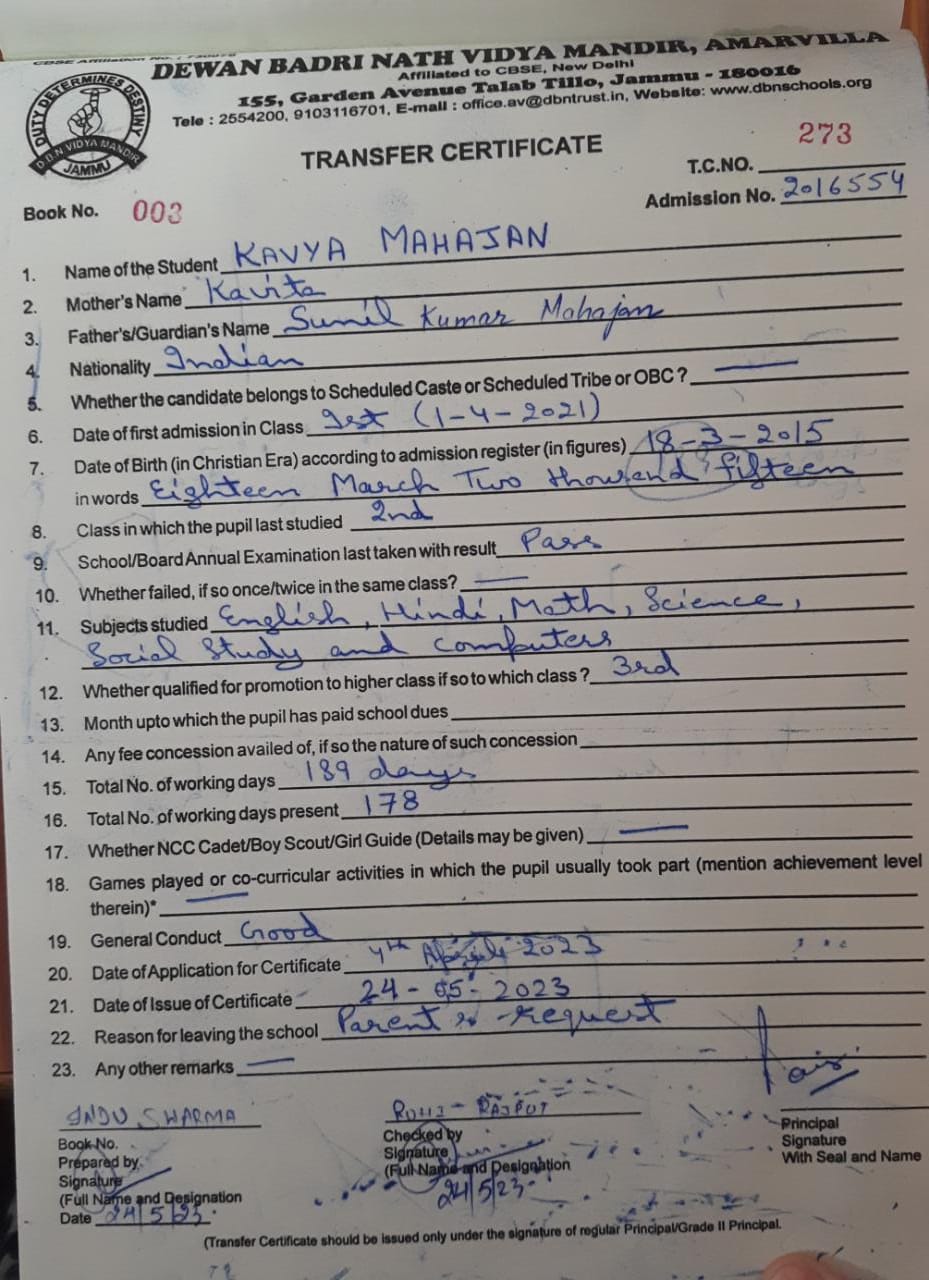 DEWAN BADRI NATH VIDYA MANDIR, AMARVILLA
Affiliated to CBSE, New Delhi
155, Garden Avenue Talab Tillo, Jammu - 180016
Tele : 2554200, 9103116701, E-mail : office.av@dbntrust.in, Website: www.dbnschools.org
DUTY DETERMINES DESTINY
D.B.N VIDYA MANDIR
JAMMU
TRANSFER CERTIFICATE
T.C.NO. 273
Book No. 003 Admission No. 2016554
1. Name of the Student KAVYA MAHAJAN
2. Mother's Name Kavita
3. Father's/Guardian's Name Sunil Kumar Mahajan
4. Nationality Indian
5. Whether the candidate belongs to Scheduled Caste or Scheduled Tribe or OBC ? —
6. Date of first admission in Class Ist (1-4-2021)
7. Date of Birth (in Christian Era) according to admission register (in figures) 18-3-2015
in words Eighteen March Two thousand fifteen
8. Class in which the pupil last studied 2nd
9. School/Board Annual Examination last taken with result Pass
10. Whether failed, if so once/twice in the same class? —
11. Subjects studied English, Hindi, Math, Science,
Social Study and Computers
12. Whether qualified for promotion to higher class if so to which class ? 3rd
13. Month upto which the pupil has paid school dues
14. Any fee concession availed of, if so the nature of such concession
15. Total No. of working days 189 days
16. Total No. of working days present 178
17. Whether NCC Cadet/Boy Scout/Girl Guide (Details may be given) —
18. Games played or co-curricular activities in which the pupil usually took part (mention achievement level
therein)* —
19. General Conduct Good
20. Date of Application for Certificate 4th April 2023
21. Date of Issue of Certificate 24-05-2023
22. Reason for leaving the school Parent's request
23. Any other remarks —
INDU SHARMA
Book No.
Prepared by
Signature
(Full Name and Designation
Date 24/5/23
RAJPUT
Checked by
Signature
(Full Name and Designation
24/5/23
Principal
Signature
With Seal and Name
(Transfer Certificate should be issued only under the signature of regular Principal/Grade II Principal.